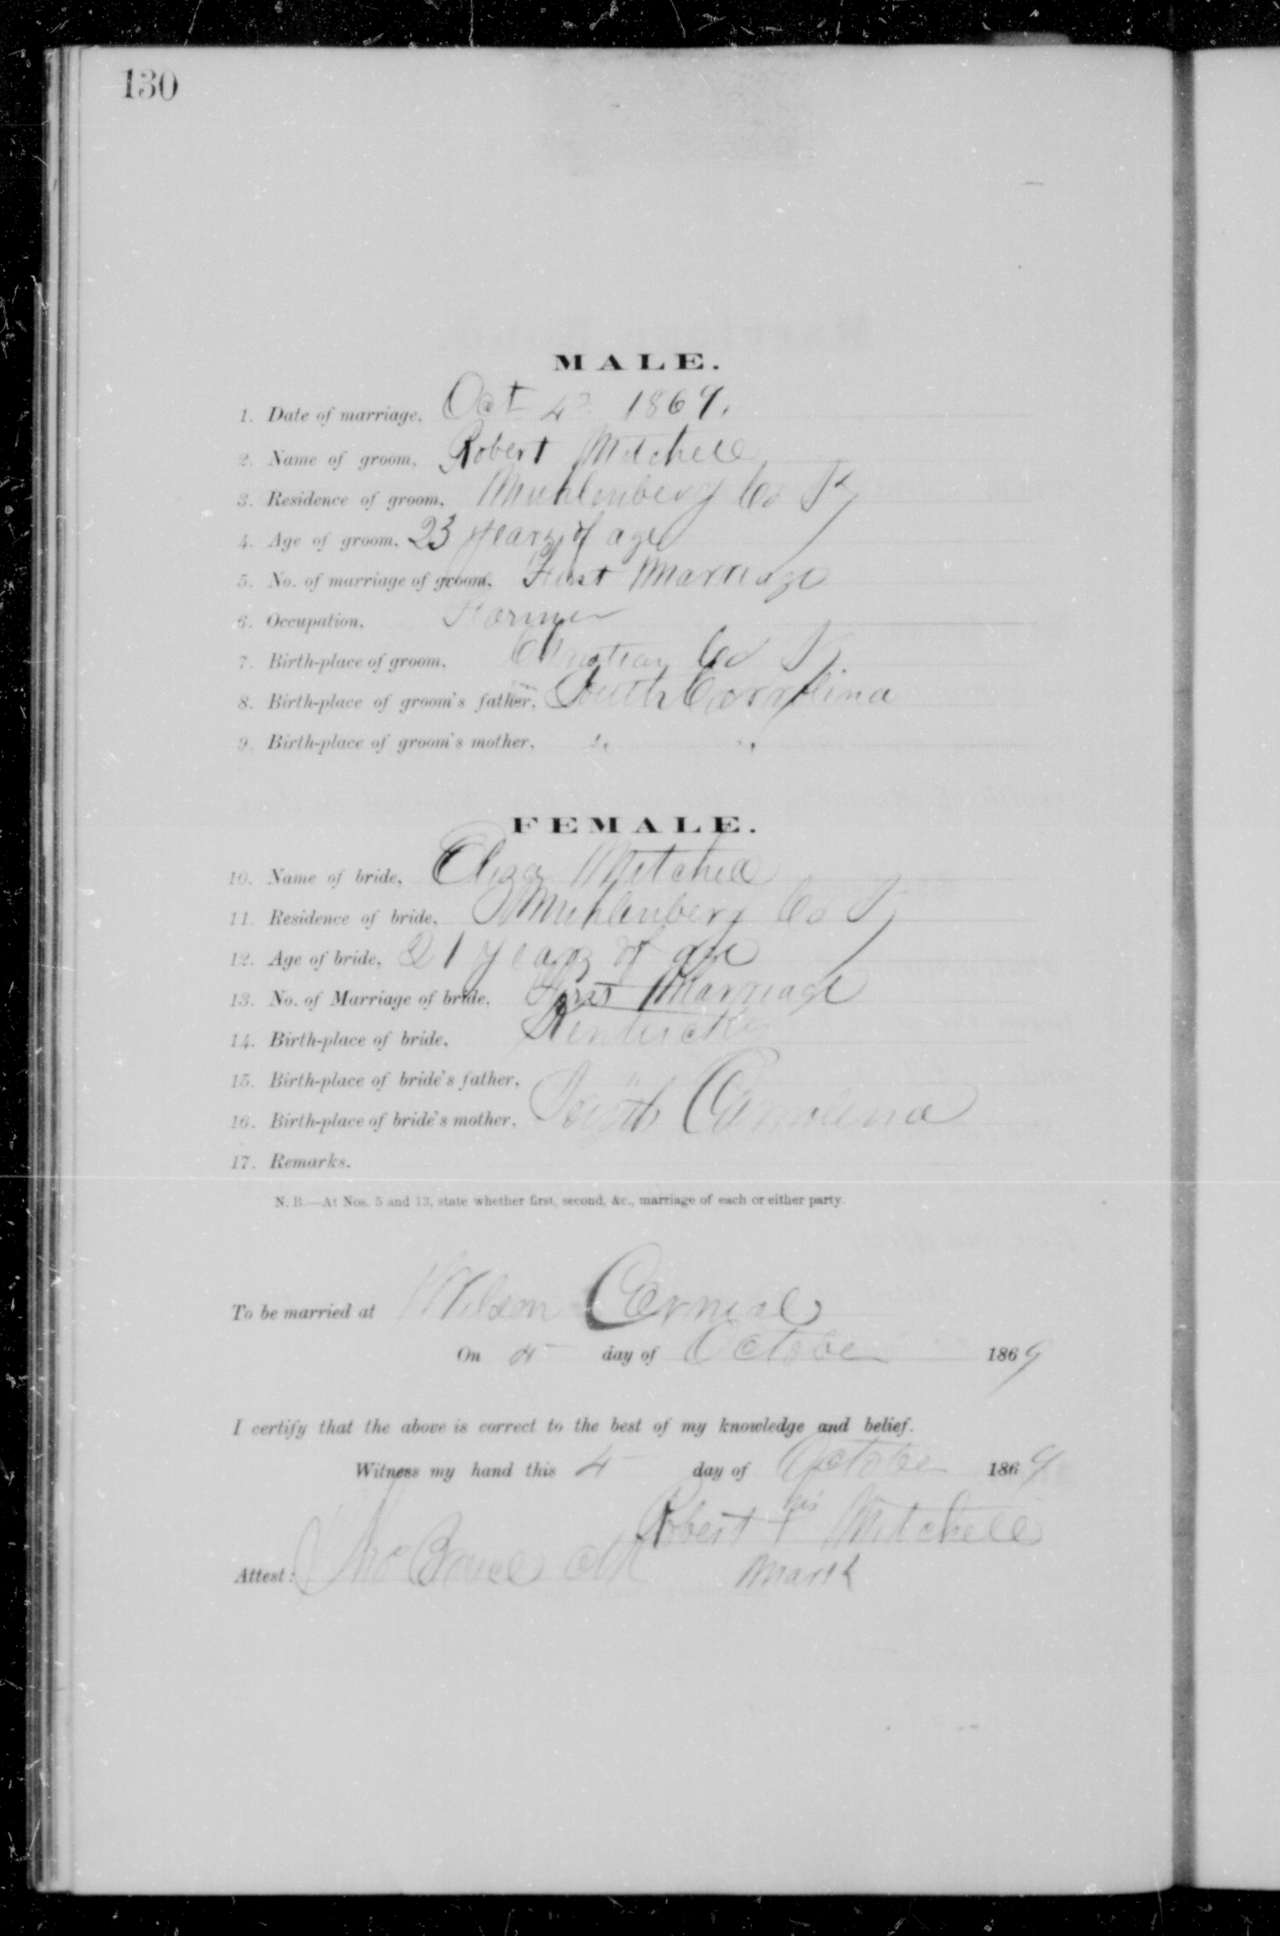 130
MALE.
1. Date of marriage, Oct 4th 1869.
2. Name of groom, Robert Mitchell
3. Residence of groom, Muhlenberg Co Ky
4. Age of groom, 23 years of age
5. No. of marriage of groom, First Marriage
6. Occupation, Farmer
7. Birth-place of groom, Christian Co Ky
8. Birth-place of groom's father, South Carrolina
9. Birth-place of groom's mother, " "
FEMALE.
10. Name of bride, Eliza Mitchell
11. Residence of bride, Muhlenberg Co Ky
12. Age of bride, 21 years of age
13. No. of Marriage of bride, First Marriage
14. Birth-place of bride, Kentucky
15. Birth-place of bride's father, "
16. Birth-place of bride's mother, South Carrolina
17. Remarks.
N. B.—At Nos. 5 and 13, state whether first, second, &c., marriage of each or either party.
To be married at Wilson
On 4 day of October 1869
I certify that the above is correct to the best of my knowledge and belief.
Witness my hand this 4 day of October 1869
Robert his + Mitchell
Attest: mark